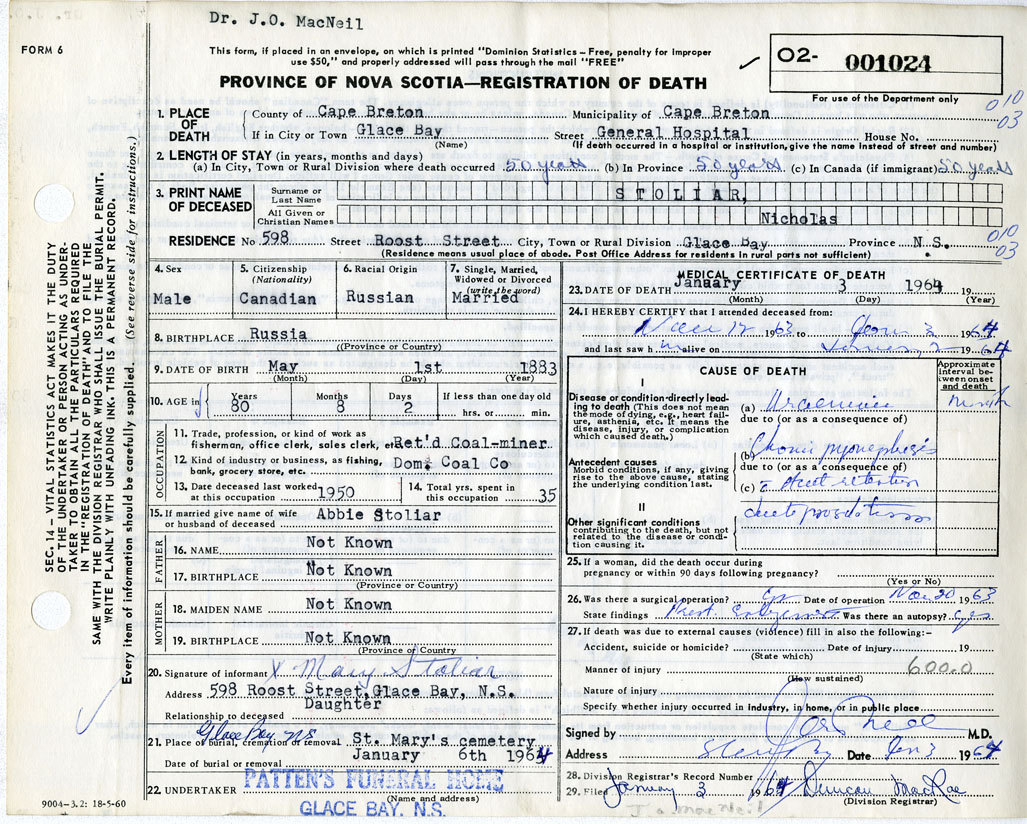 Dr. J.O. MacNeil
FORM 6
This form, if placed in an envelope, on which is printed "Dominion Statistics – Free, penalty for improper
use $50," and properly addressed will pass through the mail "FREE"
PROVINCE OF NOVA SCOTIA—REGISTRATION OF DEATH
O2- 001024
For use of the Department only
010
03
1. PLACE OF DEATH
County of Cape Breton Municipality of Cape Breton
If in City or Town Glace Bay Street General Hospital House No.
(Name) (If death occurred in a hospital or institution, give the name instead of street and number)
2. LENGTH OF STAY (in years, months and days)
(a) In City, Town or Rural Division where death occurred 50 years (b) In Province 50 years (c) In Canada (if immigrant) 50 years
3. PRINT NAME OF DECEASED
Surname or Last Name STOLIAR,
All Given or Christian Names Nicholas
RESIDENCE No 598 Street Roost Street City, Town or Rural Division Glace Bay Province N.S.
(Residence means usual place of abode. Post Office Address for residents in rural parts not sufficient)
010
03
4. Sex
Male
5. Citizenship
(Nationality)
Canadian
6. Racial Origin
Russian
7. Single, Married,
Widowed or Divorced
(write the word)
Married
8. BIRTHPLACE Russia
((Province or Country)
9. DATE OF BIRTH May 1st 1883
(Month) (Day) (Year)
10. AGE in
Years Months Days If less than one day old
80 8 2 hrs. or min.
OCCUPATION
11. Trade, profession, or kind of work as
fisherman, office clerk, sales clerk, etc. Ret'd Coal-miner
12. Kind of industry or business, as fishing,
bank, grocery store, etc. Dom. Coal Co
13. Date deceased last worked
at this occupation 1950
14. Total yrs. spent in
this occupation 35
15. If married give name of wife
or husband of deceased Abbie Stoliar
FATHER
16. NAME Not Known
17. BIRTHPLACE Not Known
(Province or Country)
MOTHER
18. MAIDEN NAME Not Known
19. BIRTHPLACE Not Known
(Province or Country)
20. Signature of informant x Mary Stoliar
Address 598 Roost Street, Glace Bay, N.S.
Relationship to deceased Daughter
Glace Bay NS
21. Place of burial, cremation or removal St. Mary's cemetery
Date of burial or removal January 6th 1964
22. UNDERTAKER PATTEN'S FUNERAL HOME
(Name and address)
GLACE BAY, N.S.
9004–3.2: 18-5-60
MEDICAL CERTIFICATE OF DEATH
23. DATE OF DEATH January 3 1964 19
(Month) (Day) (Year)
24. I HEREBY CERTIFY that I attended deceased from:
1963 to 3 1964
and last saw h m alive on 1964
CAUSE OF DEATH
Approximate
interval be-
tween onset
and death
I
Disease or condition directly lead-
ing to death (This does not mean
the mode of dying, e.g., heart fail-
ure, asthenia, etc. It means the
disease, injury, or complication
which caused death.)
(a) Uraemia
due to (or as a consequence of)
Antecedent causes
Morbid conditions, if any, giving
rise to the above cause, stating
the underlying condition last.
(b)
due to (or as a consequence of)
(c) retention
II
Other significant conditions
contributing to the death, but not
related to the disease or condi-
tion causing it.
25. If a woman, did the death occur during
pregnancy or within 90 days following pregnancy?
(Yes or No)
26. Was there a surgical operation? yes Date of operation Nov 20 1963
State findings Was there an autopsy? yes
27. If death was due to external causes (violence) fill in also the following:–
Accident, suicide or homicide? Date of injury 19
(State which)
Manner of injury 600.0
(How sustained)
Nature of injury
Specify whether injury occurred in industry, in home, or in public place
Signed by M.D.
Address Date Jan 3 1964
28. Division Registrar's Record Number
29. Filed January 3 1964 Duncan MacRae
(Division Registrar)
J.O. MacNeil
SEC. 14 – VITAL STATISTICS ACT MAKES IT THE DUTY
OF THE UNDERTAKER OR PERSON ACTING AS UNDER-
TAKER TO OBTAIN ALL THE PARTICULARS REQUIRED
IN THE "REGISTRATION OF DEATH" AND TO FILE THE
SAME WITH THE DIVISION REGISTRAR WHO SHALL ISSUE THE BURIAL PERMIT.
WRITE PLAINLY WITH UNFADING INK. THIS IS A PERMANENT RECORD.
Every item of information should be carefully supplied. (See reverse side for instructions.)